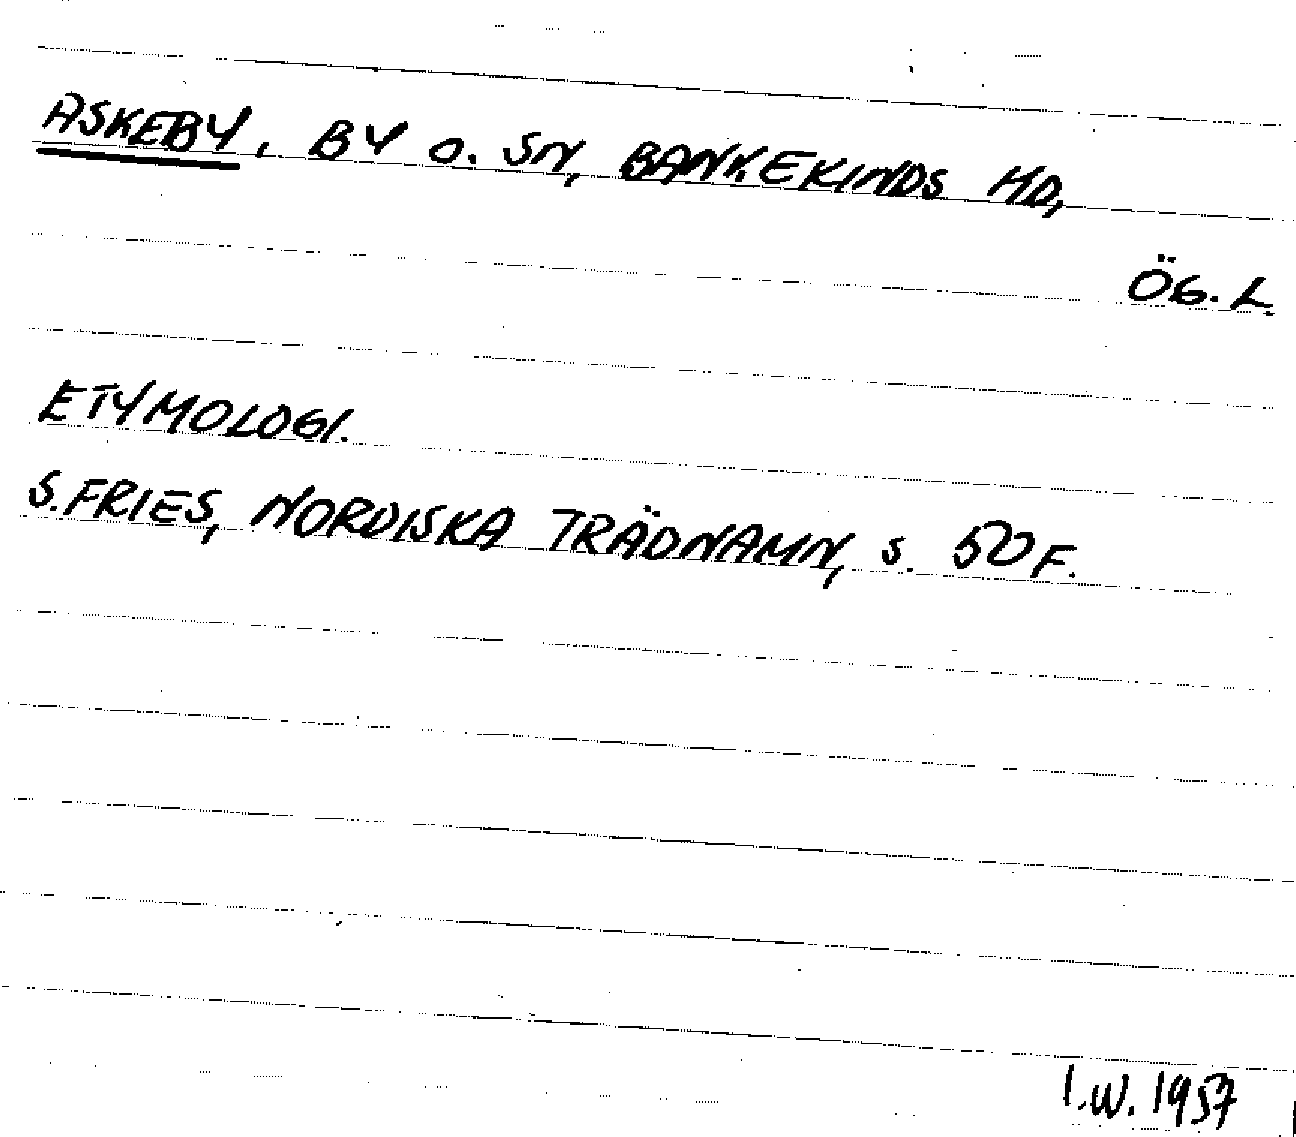 ASKEBY, BY o. SN, BANKEKINDS HD,
ÖG. L.
ETYMOLOGI.
S. FRIES, NORDISKA TRÄDNAMN, s. 50 F.
I.W. 1957